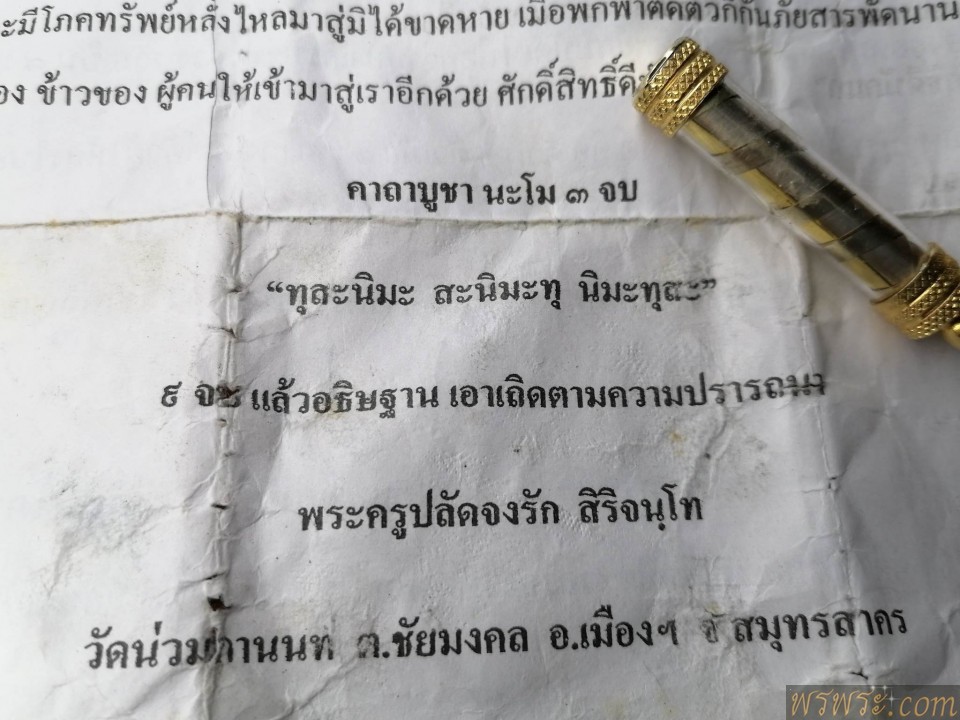 ะมีโภคทรัพย์หลั่งไหลมาสู่มิได้ขาดหาย เมื่อพกพาติดตัวก็กันภัยสารพัดนาน
อง ข้าวของ ผู้คนให้เข้ามาสู่เราอีกด้วย ศักดิ์สิทธิ์ดี
คาถาบูชา นะโม ๓ จบ
“ทุสะนิมะ สะนิมะทุ นิมะทุสะ”
๙ จบ แล้วอธิษฐาน เอาเถิดตามความปรารถนา
พระครูปลัดจงรัก สิริจนฺโท
วัดน่วมกานนท ต.ชัยมงคล อ.เมืองฯ จ สมุทรสาคร
พรพระ.com